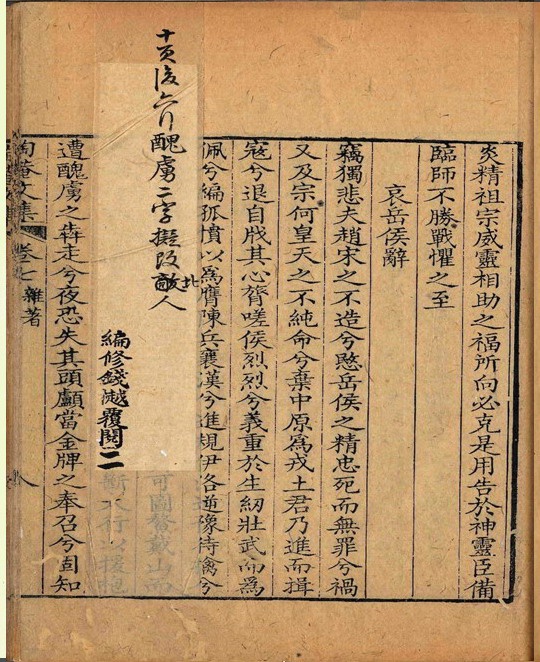 炎精祖宗威靈相助之福所向必克是用告於神靈臣備
臨師不勝戰懼之至
哀岳侯辭
竊獨悲夫趙宋之不造兮愍岳侯之精忠死而無罪兮禍
又及宗何皇天之不純命兮棄中原為戎土君乃進而揖
寇兮退自戕其心膂嗟侯烈烈兮義重於生紉壯武而為
佩兮編孤憤以為膺陳兵襄漢兮進規伊洛逆豫待禽兮
可圖鰲戴山而
斷水行以援
十頁後六行醜虜二字擬改
北敵人
編修錢樾覆閱二
遭醜虜之犇走兮夜恐失其頭顱當金牌之奉召兮固知
陶菴文集
卷七 雜著
八